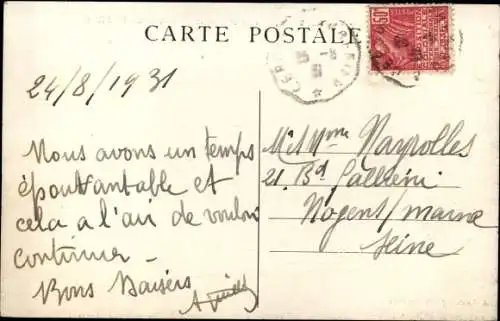 CARTE POSTALE
24/8/1931
Nous avons un temps
épouvantable et
cela a l'air de vouloir
continuer -
Bons Baisers
M et Mme Nayrolles
21. Bd Gallieni
Nogent/marne
Seine